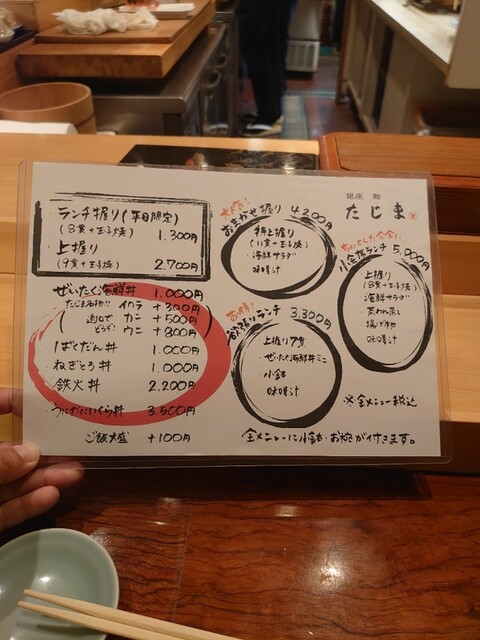 ランチ握り(平日限定)
(8貫+玉子焼) 1.300円
上握り
(9貫+玉子焼) 2.700円
ぜいたく海鮮丼 1.000円
たじま名物!! イクラ +300円
追加で カニ +500円
どうぞ! ウニ +800円
ばくだん丼 1.000円
ねぎとろ丼 1.000円
鉄火丼 2.200円
うにかにいくら丼 3.500円
ご飯大盛 +100円
大人気!
おまかせ握り 4.200円
特上握り
(11貫+玉子焼)
・海鮮サラダ
・味噌汁
お得!
欲張りランチ 3.300円
上握り7貫
・ぜいたく海鮮丼ミニ
・小鉢
・味噌汁
銀座 鮨
たじま
ちょっとした会食に
小会席ランチ 5.000円
上握り
(8貫+玉子焼)
・海鮮サラダ
・茶わん蒸し
・揚げ物
・味噌汁
※全メニュー税込
全メニューに小鉢・お椀が付きます。